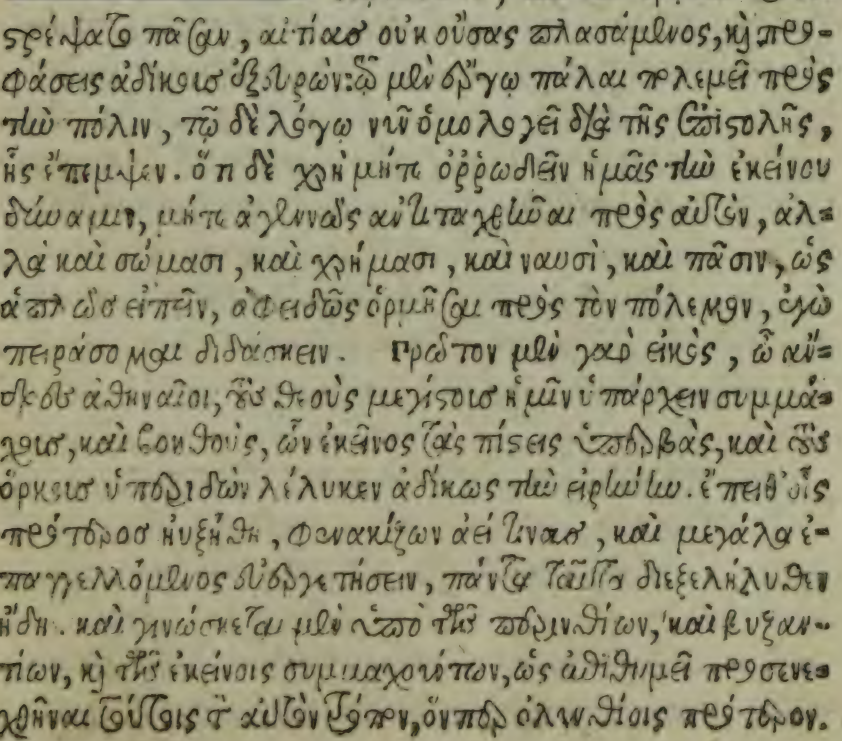 στρέψατο πᾶσαν, αἰτίασ οὐκ οὔσας πλασάμενος, καὶ προ-
φάσεις ἀδίκουσ ἐξευρών: τῷ μὲν ἔργῳ πάλαι πολεμεῖ πρὸς
τὴν πόλιν, τῷ δὲ λόγῳ νῦν ὁμολογεῖ διὰ τῆς ἐπιστολῆς,
ἧς ἔπεμψεν. ὅτι δὲ χρὴ μήτε ὀῤῥωδεῖν ἡμᾶς τὴν ἐκείνου
δύναμιν, μήτε ἀγεννῶς ἀντιταχθῆναι πρὸς αὐτὸν, ἀλ-
λὰ καὶ σώμασι, καὶ χρήμασι, καὶ ναυσὶ, καὶ πᾶσιν, ὡς
ἁπλῶσ εἰπεῖν, ἀφειδῶς ὁρμῆσαι πρὸς τὸν πόλεμον, ἐγὼ
πειράσομαι διδάσκειν. Πρῶτον μὲν γὰρ εἰκὸς, ὦ ἄν-
δρες ἀθηναῖοι, τοὺς θεοὺς μεγίστουσ ἡμῖν ὑπάρχειν συμμά-
χουσ, καὶ βοηθοὺς, ὧν ἐκεῖνος τὰς πίστεις ὑπερβὰς, καὶ τοὺς
ὅρκουσ ὑπεριδὼν λέλυκεν ἀδίκως τὴν εἰρήνην. ἔπειθ' οἷς
πρότεροσ ηὐξήθη, φενακίζων ἀεί τινασ, καὶ μεγάλα ἐ-
παγγελλόμενος εὐεργετήσειν, πάντα ταῦτα διεξελήλυθεν
ἤδη. καὶ γινώσκεται μὲν ὑπὸ τῶν περινθίων, καὶ βυζαν-
τίων, καὶ τῶν ἐκείνοις συμμαχούντων, ὡς ἐπιθυμεῖ προσενε-
χθῆναι τούτοις τὸν αὐτὸν τρόπον, ὅνπερ ὀλυνθίοις πρότερον.